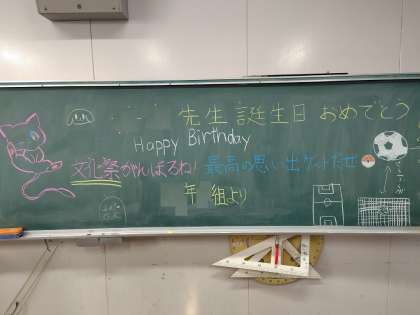 先生 誕生日 おめでとう
Happy Birthday
文化祭がんばるね! 最高の思い出ゲットだぜ
年 組より